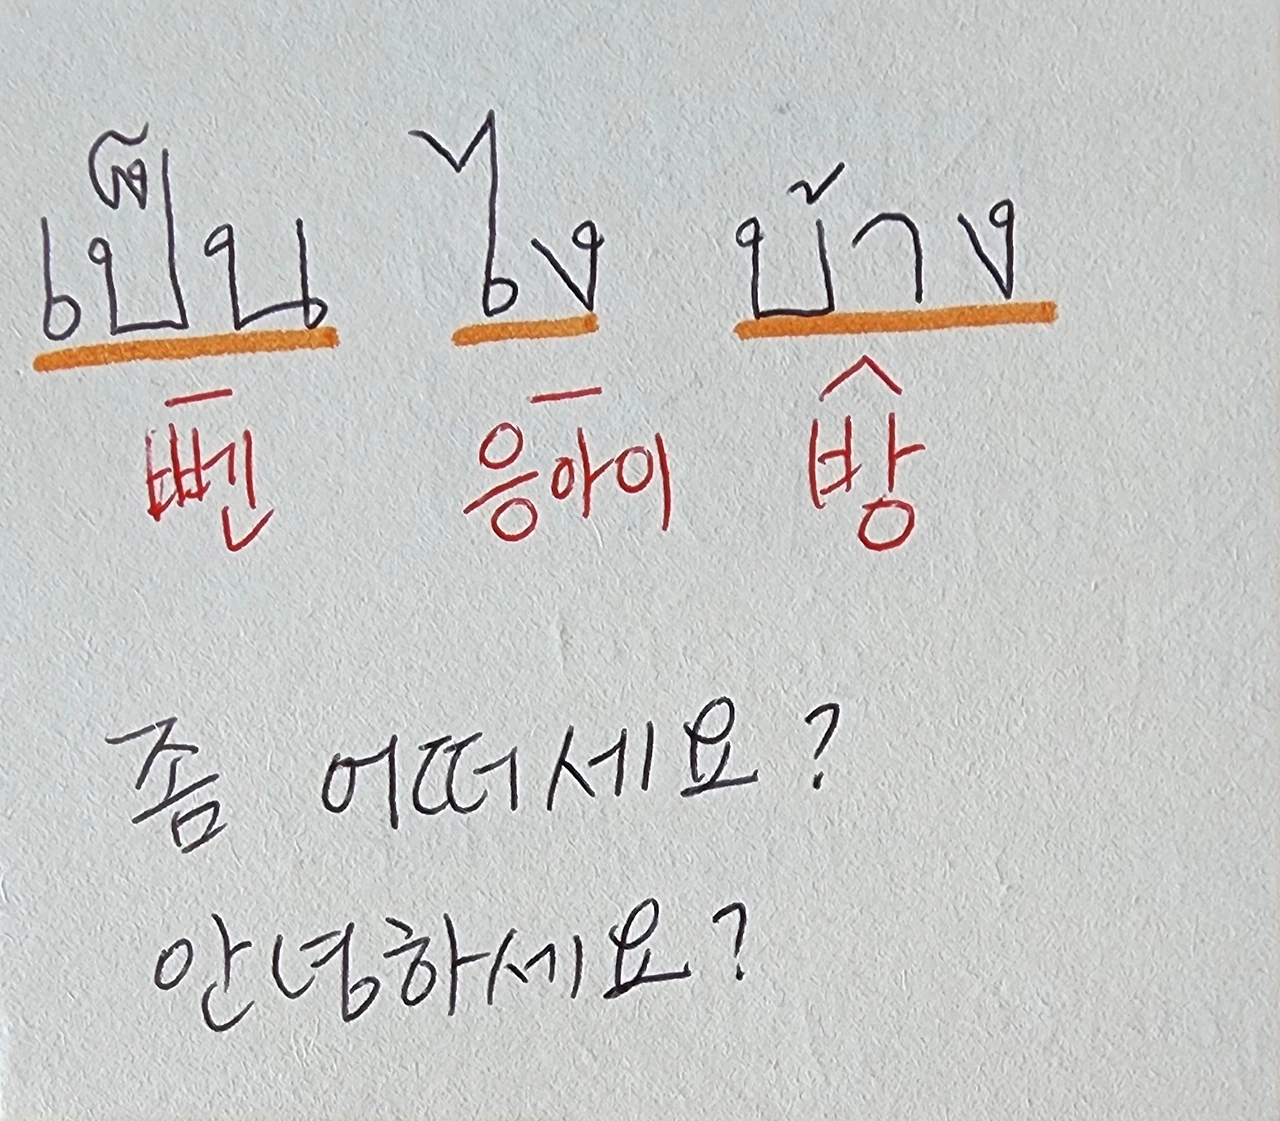 เป็น ไง บ้าง
뻰 응아이 방
좀 어떠세요?
안녕하세요?